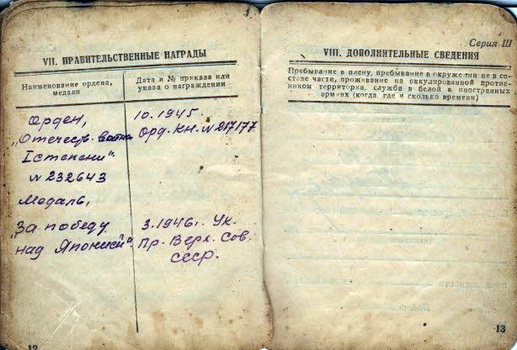 VII. ПРАВИТЕЛЬСТВЕННЫЕ НАГРАДЫ
Наименование ордена, медали
Дата и № приказа или указа о награждении
Орден,
„Отечеств. война
I степени".
№ 232643
10.1945.
Орд. кн. № 217177
Медаль,
„За победу
над Японией"
3.1946г. Ук.
Пр. Верх. Сов.
СССР.
12
Серия III
VIII. ДОПОЛНИТЕЛЬНЫЕ СВЕДЕНИЯ
Пребывание в плену, пребывание в окружении не в со-
ставе части, проживание на оккупированной против-
ником территории, служба в белой и иностранных
армиях (когда, где и сколько времени)
13